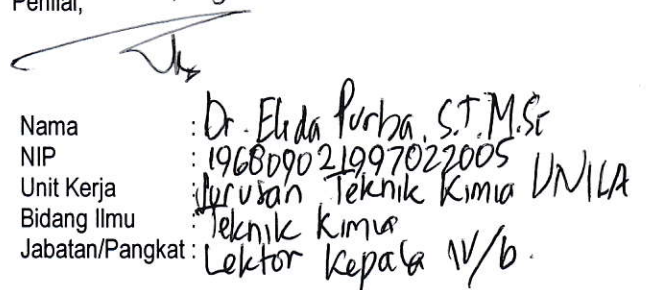 Penilai,
Nama : Dr. Elida Purba, S.T. M.Sc
NIP : 196809021997022005
Unit Kerja : Jurusan Teknik Kimia UNILA
Bidang Ilmu : Teknik Kimia
Jabatan/Pangkat : Lektor Kepala IV/b.